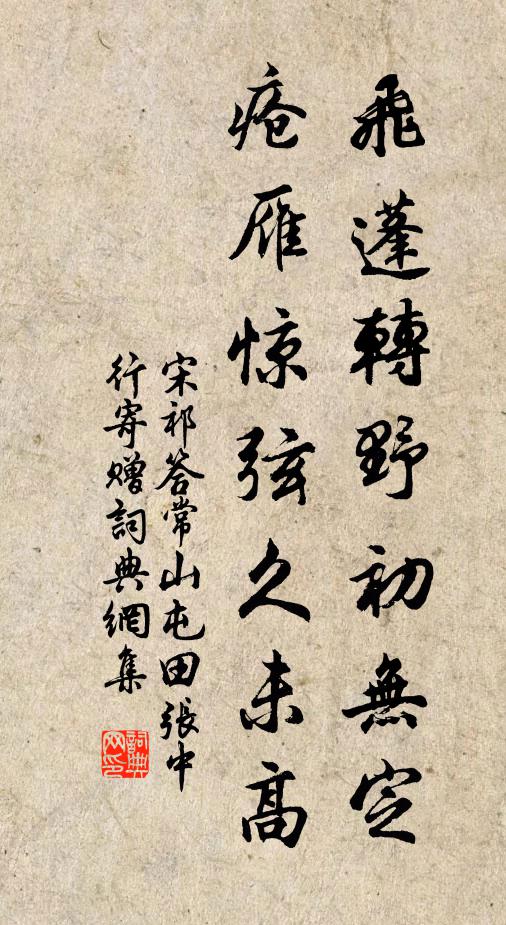 飛蓬轉野初無定
瘡雁惊弦久未高
宋祁答常山屯田張中
行寄贈詞典網集
詞典
网印